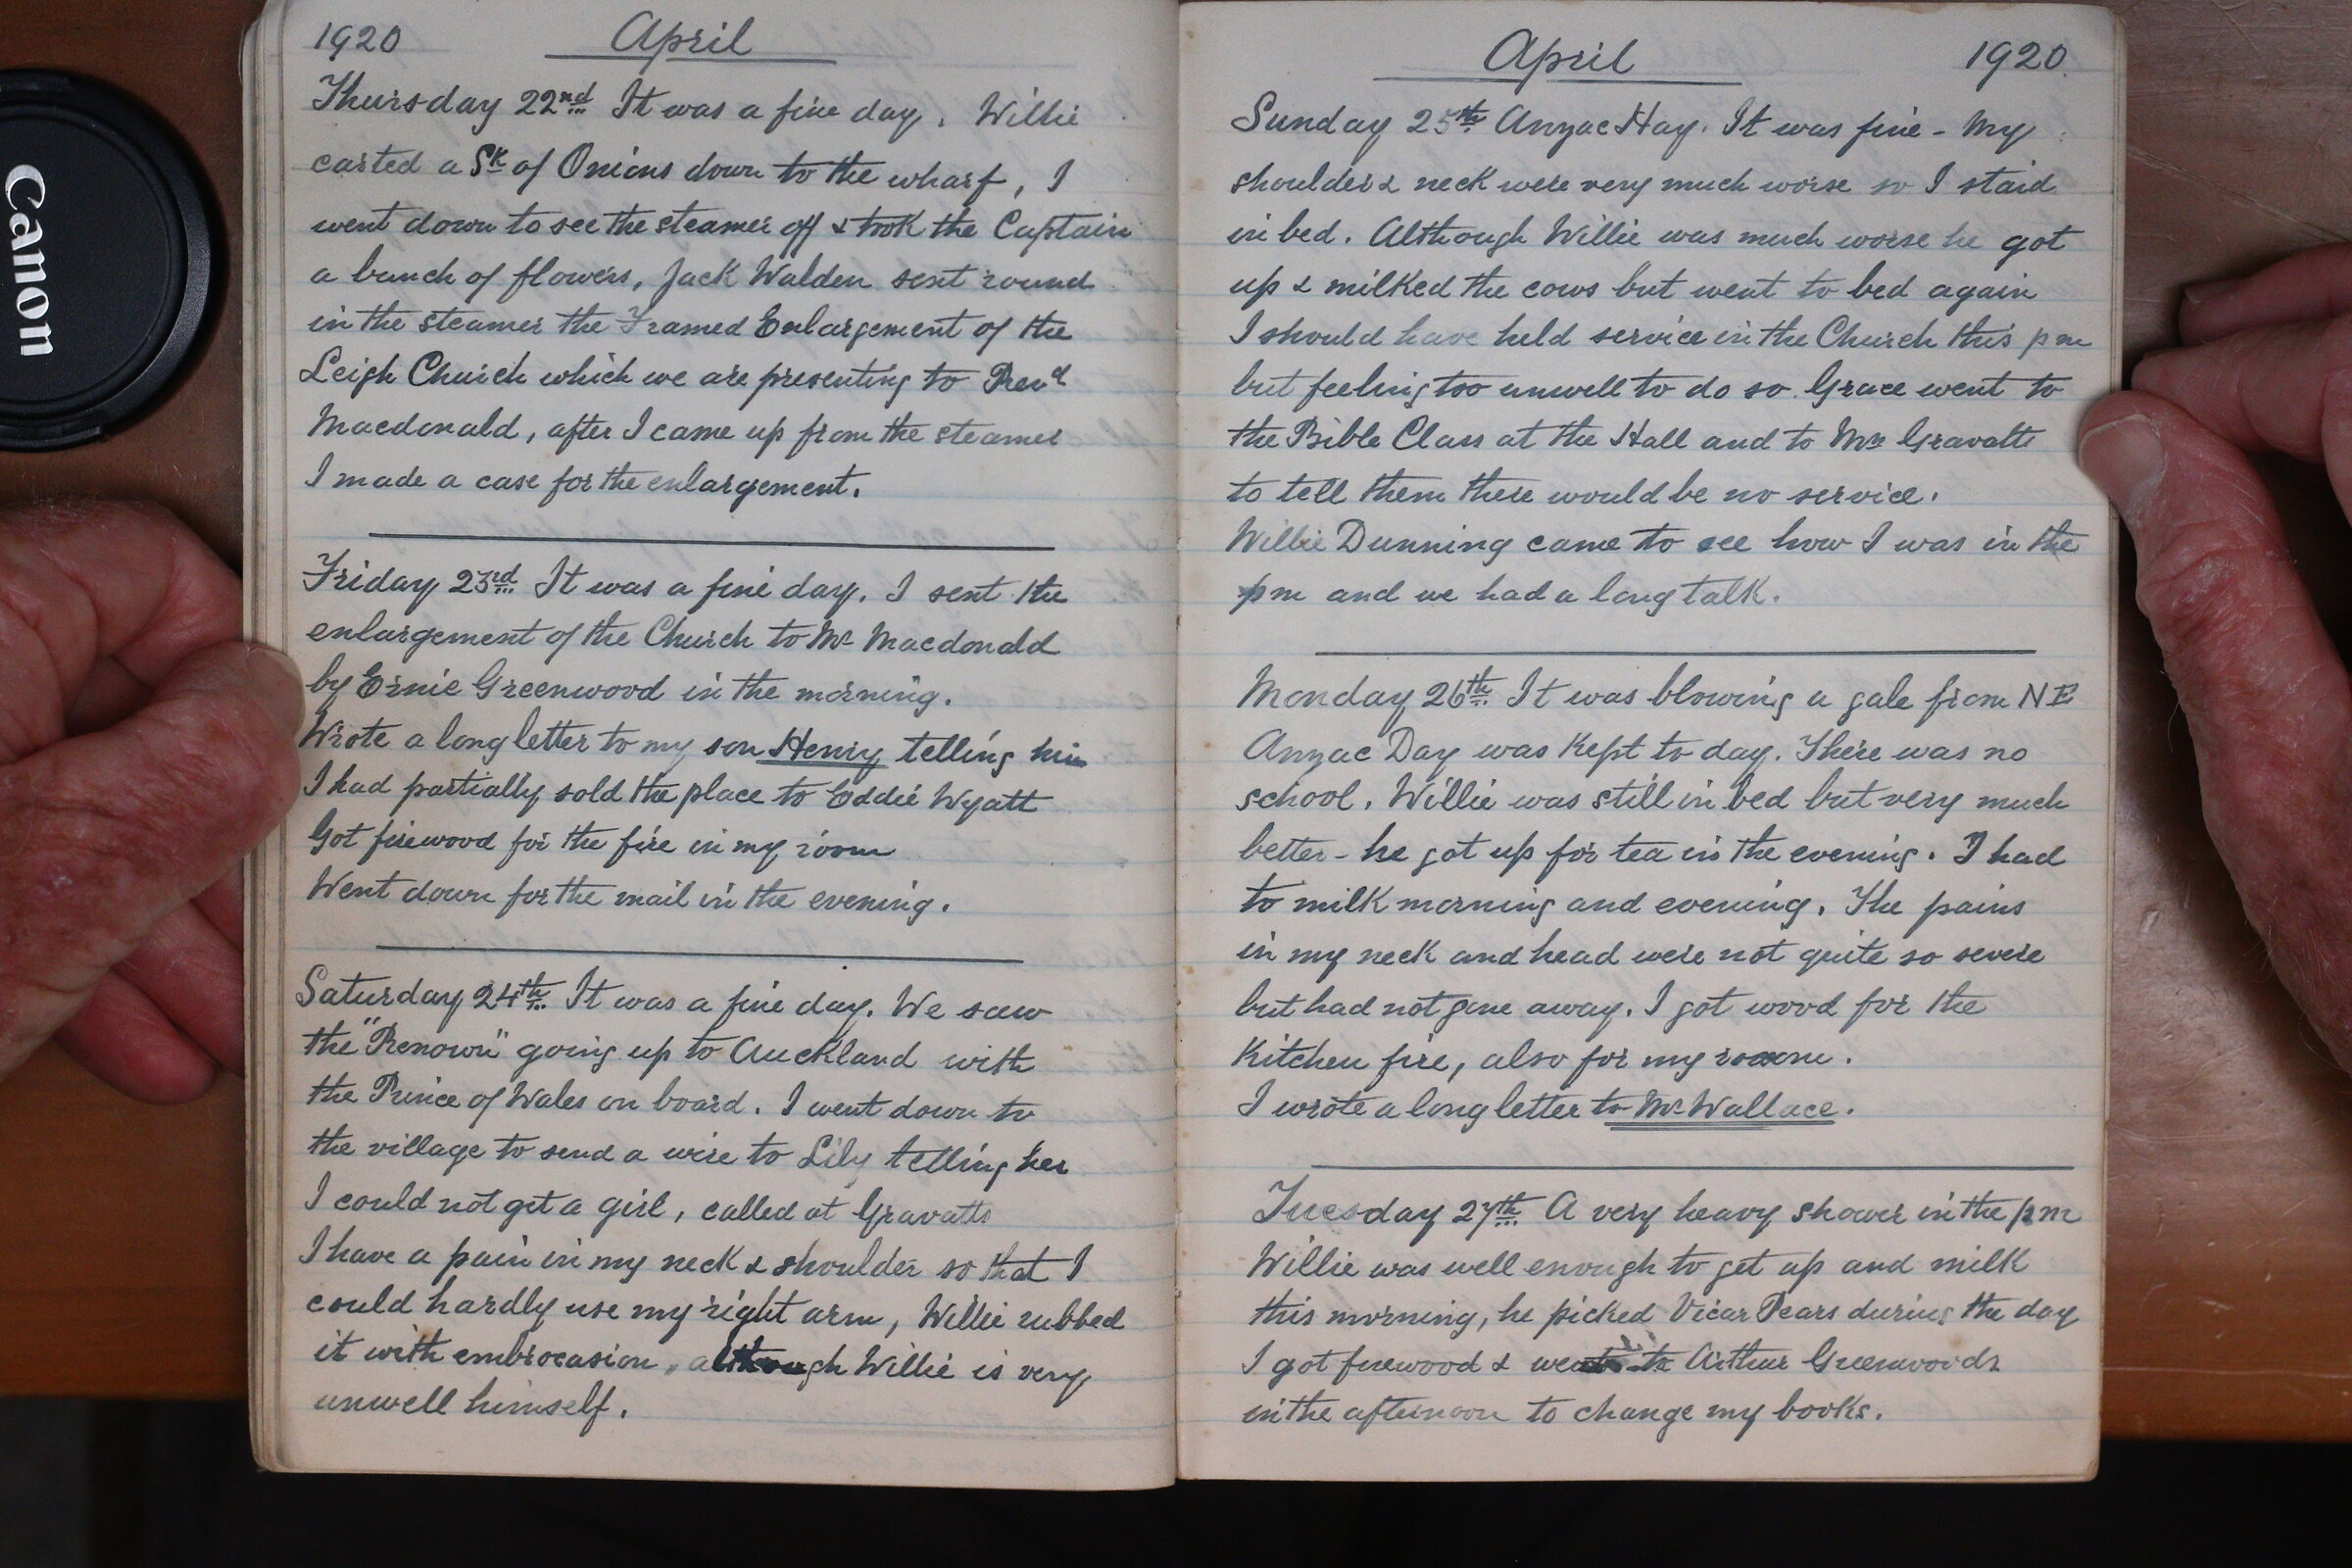 Canon
1920 April
Thursday 22nd It was a fine day. Willie
carted a Sk of Onions down to the wharf, I
went down to see the steamer off & took the Captain
a bunch of flowers, Jack Walden sent round
in the steamer the Framed Enlargement of the
Leigh Church which we are presenting to Revd
Macdonald, after I came up from the steamer
I made a case for the enlargement.
Friday 23rd It was a fine day. I sent the
enlargement of the Church to Mr Macdonald
by Ernie Greenwood in the morning.
Wrote a long letter to my son Henry telling him
I had partially sold the place to Eddie Wyatt
Got firewood for the fire in my room
Went down for the mail in the evening.
Saturday 24th It was a fine day. We saw
the "Renown" going up to Auckland with
the Prince of Wales on board. I went down to
the village to send a wire to Lily telling her
I could not get a girl, called at Gravatts
I have a pain in my neck & shoulder so that I
could hardly use my right arm, Willie rubbed
it with embrocasion, although Willie is very
unwell himself.
April 1920
Sunday 25th Anzac Hay. It was fine - My
shoulder & neck were very much worse so I staid
in bed. Although Willie was much worse he got
up & milked the cows but went to bed again
I should have held service in the Church this pm
but feeling too unwell to do so. Grace went to
the Bible Class at the Hall and to Mrs Gravatts
to tell them there would be no service.
Willie Dunning came to see how I was in the
pm and we had a long talk.
Monday 26th It was blowing a gale from NE
Anzac Day was kept to day. There was no
school. Willie was still in bed but very much
better - he got up for tea in the evening. I had
to milk morning and evening. The pains
in my neck and head were not quite so severe
but had not gone away. I got wood for the
Kitchen fire, also for my room.
I wrote a long letter to Mr Wallace.
Tuesday 27th A very heavy shower in the pm
Willie was well enough to get up and milk
this morning, he picked Vicar Pears during the day
I got firewood & went to Arthur Greenwoods
in the afternoon to change my books.